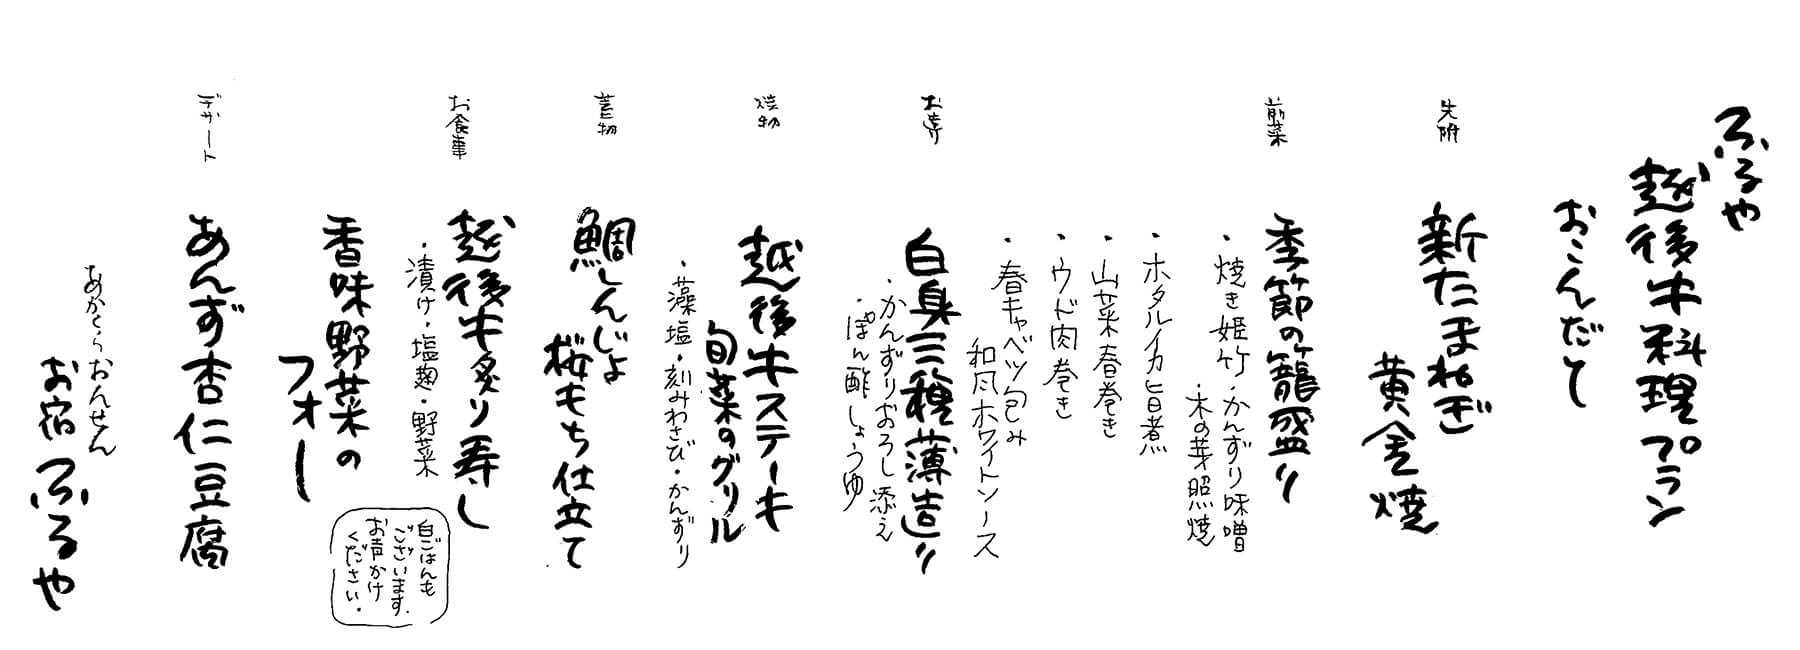 ふるや
越後牛料理プラン
おこんだて
先附
新たまねぎ
黄金焼
前菜
季節の籠盛り
・焼き姫竹・かんずり味噌
・木の芽照焼
・ホタルイカ旨煮
・山菜春巻き
・ウド肉巻き
・春キャベツ包み
和風ホワイトソース
お造り
白身三種薄造り
・かんずりおろし添え
・ぽん酢しょうゆ
焼物
越後牛ステーキ
旬菜のグリル
・藻塩・刻みわさび・かんずり
蒸物
鯛しんじょ
桜もち仕立て
お食事
越後牛炙り寿し
・漬け・塩麹・野菜
香味野菜の
フォー
白ごはんも
ございます.
お声かけ
ください.
デザート
あんず杏仁豆腐
あかくらおんせん
お宿ふるや